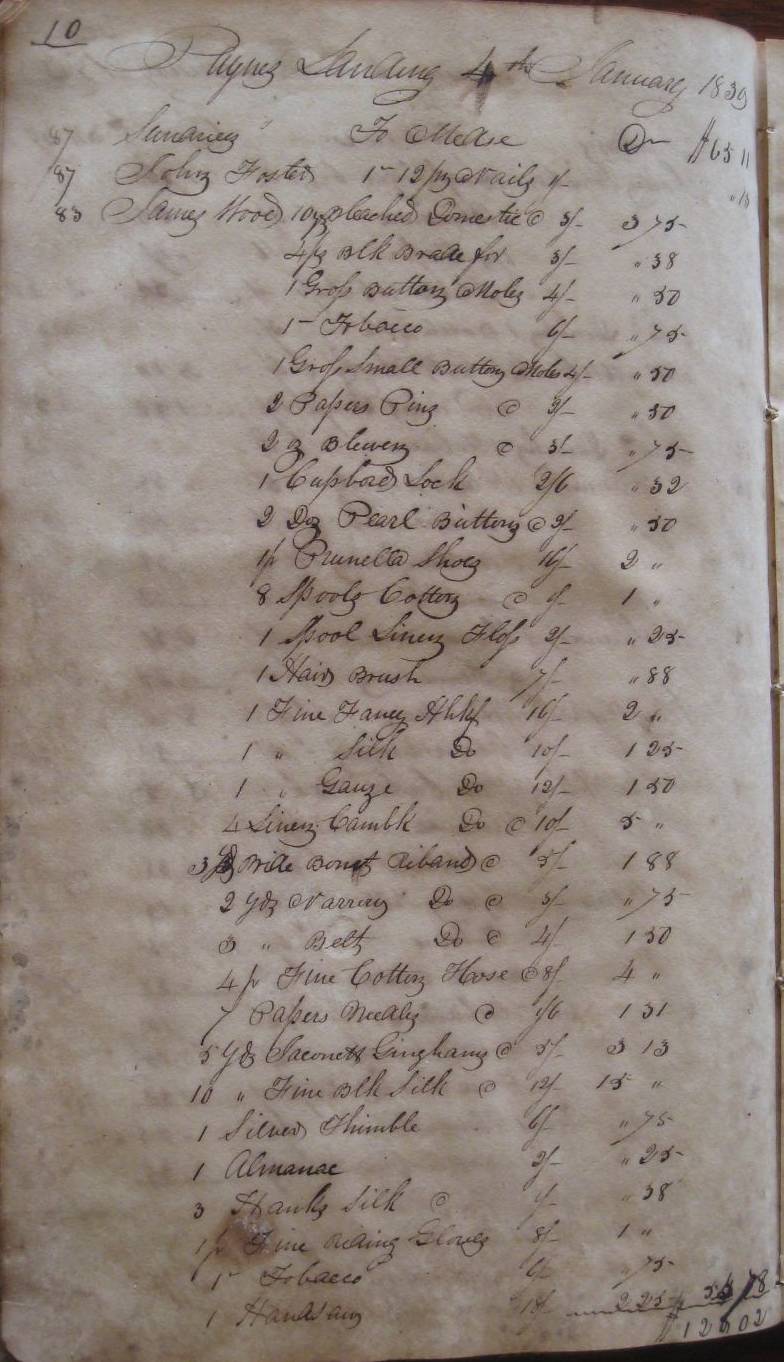 10
Paynes Landing 4th January 1839
87 Sundries To Mdse Dr $65 11
87 John Foster 1 - 12 Nails 1/- " 13
83 James Wood 10 yds Bleached Domestic @ 3/- 3 75
4 ps Blk Braid for 3/- " 38
1 Gross Button Moles 4/- " 50
1 - Tobacco 6/- " 75
1 Gross Small Button Moles 4/- " 50
2 Papers Pins @ 2/- " 50
2 @ 3/- " 75
1 Cupbord Lock 2/6 " 32
2 Doz Pearl Buttons @ 2/- " 50
1 p Prunella Shoes 16/- 2 "
8 Spools Cotton @ 1/- 1 "
1 Spool Linen Floss 2/- " 25
1 Hair Brush 7/- " 88
1 Fine Fancy Hhkf 16/- 2 "
1 " Silk Do 10/- 1 25
1 " Gauze Do 12/- 1 50
4 Linen Cambk Do @ 10/- 5 "
3 Wide Bonet Riband @ 5/- 1 88
2 yds Narrow Do @ 3/- " 75
3 " Belt Do @ 4/- 1 50
4 pr Fine Cotton Hose @ 8/- 4 "
7 Papers Needles @ 1/6 1 31
5 yds Jaconett Ginghams @ 5/- 3 13
10 " Fine Blk Silk @ 12/- 15 "
1 Silver Thimble 6/- " 75
1 Almanac 2/- " 25
3 Hanks Silk @ 1/- " 38
1 p Fine Riding Gloves 8/- 1 "
1 - Tobacco 6/- " 75
1 Handsaw 18/- 2 25 78